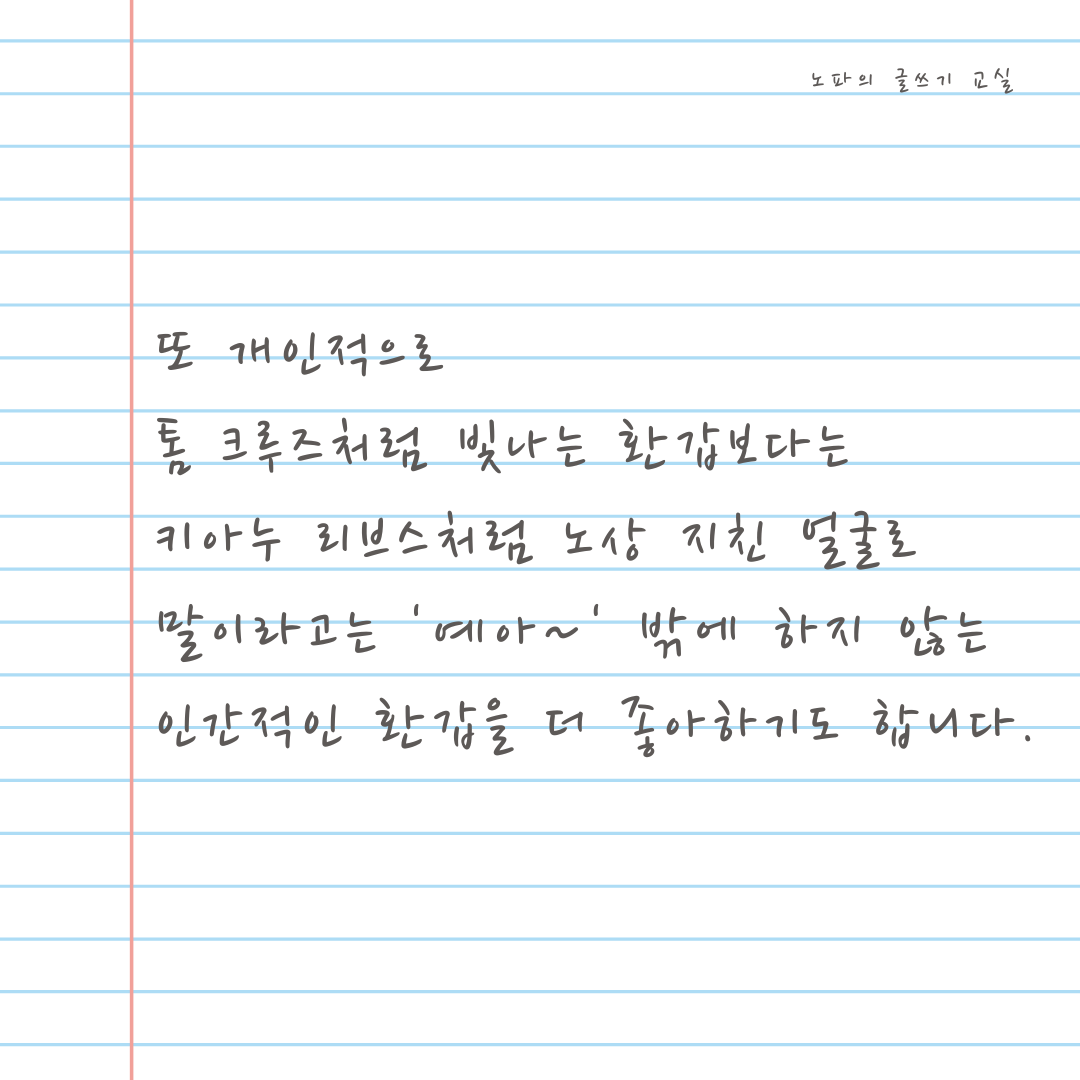 노파의 글쓰기 교실
또 개인적으로
톰 크루즈처럼 빛나는 환갑보다는
키아누 리브스처럼 노상 지친 얼굴로
말이라고는 '예아~' 밖에 하지 않는
인간적인 환갑을 더 좋아하기도 합니다.